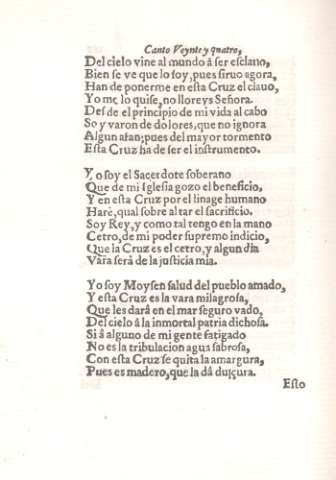 Canto Veynte y quatro,
Del cielo vine al mundo â ser esclauo,
Bien se ve que lo soy, pues siruo agora,
Han de ponerme en esta Cruz el clauo,
Yo me lo quise, no lloreys Señora.
Desde el principio de mi vida al cabo
Soy varon de dolores, que no ignora
Algun afan; pues del mayor tormento
Esta Cruz ha de ser el instrumento.
Yo soy el Sacerdote soberano
Que de mi Iglesia gozo el beneficio,
Y en esta Cruz por el linage humano
Harè, qual sobre altar el sacrificio.
Soy Rey, y como tal tengo en la mano
Cetro, de mi poder supremo indicio,
Que la Cruz es el cetro, y algun dia
Vara serà de la justicia mia.
Yo soy Moysen salud del pueblo amado,
Y esta Cruz es la vara milagrosa,
Que les darà en el mar seguro vado,
Del cielo â la inmortal patria dichosa.
Si â alguno de mi gente fatigado
No es la tribulacion agua sabrosa,
Con esta Cruz se quita la amargura,
Pues es madero, que la dâ dulçura.
Esto